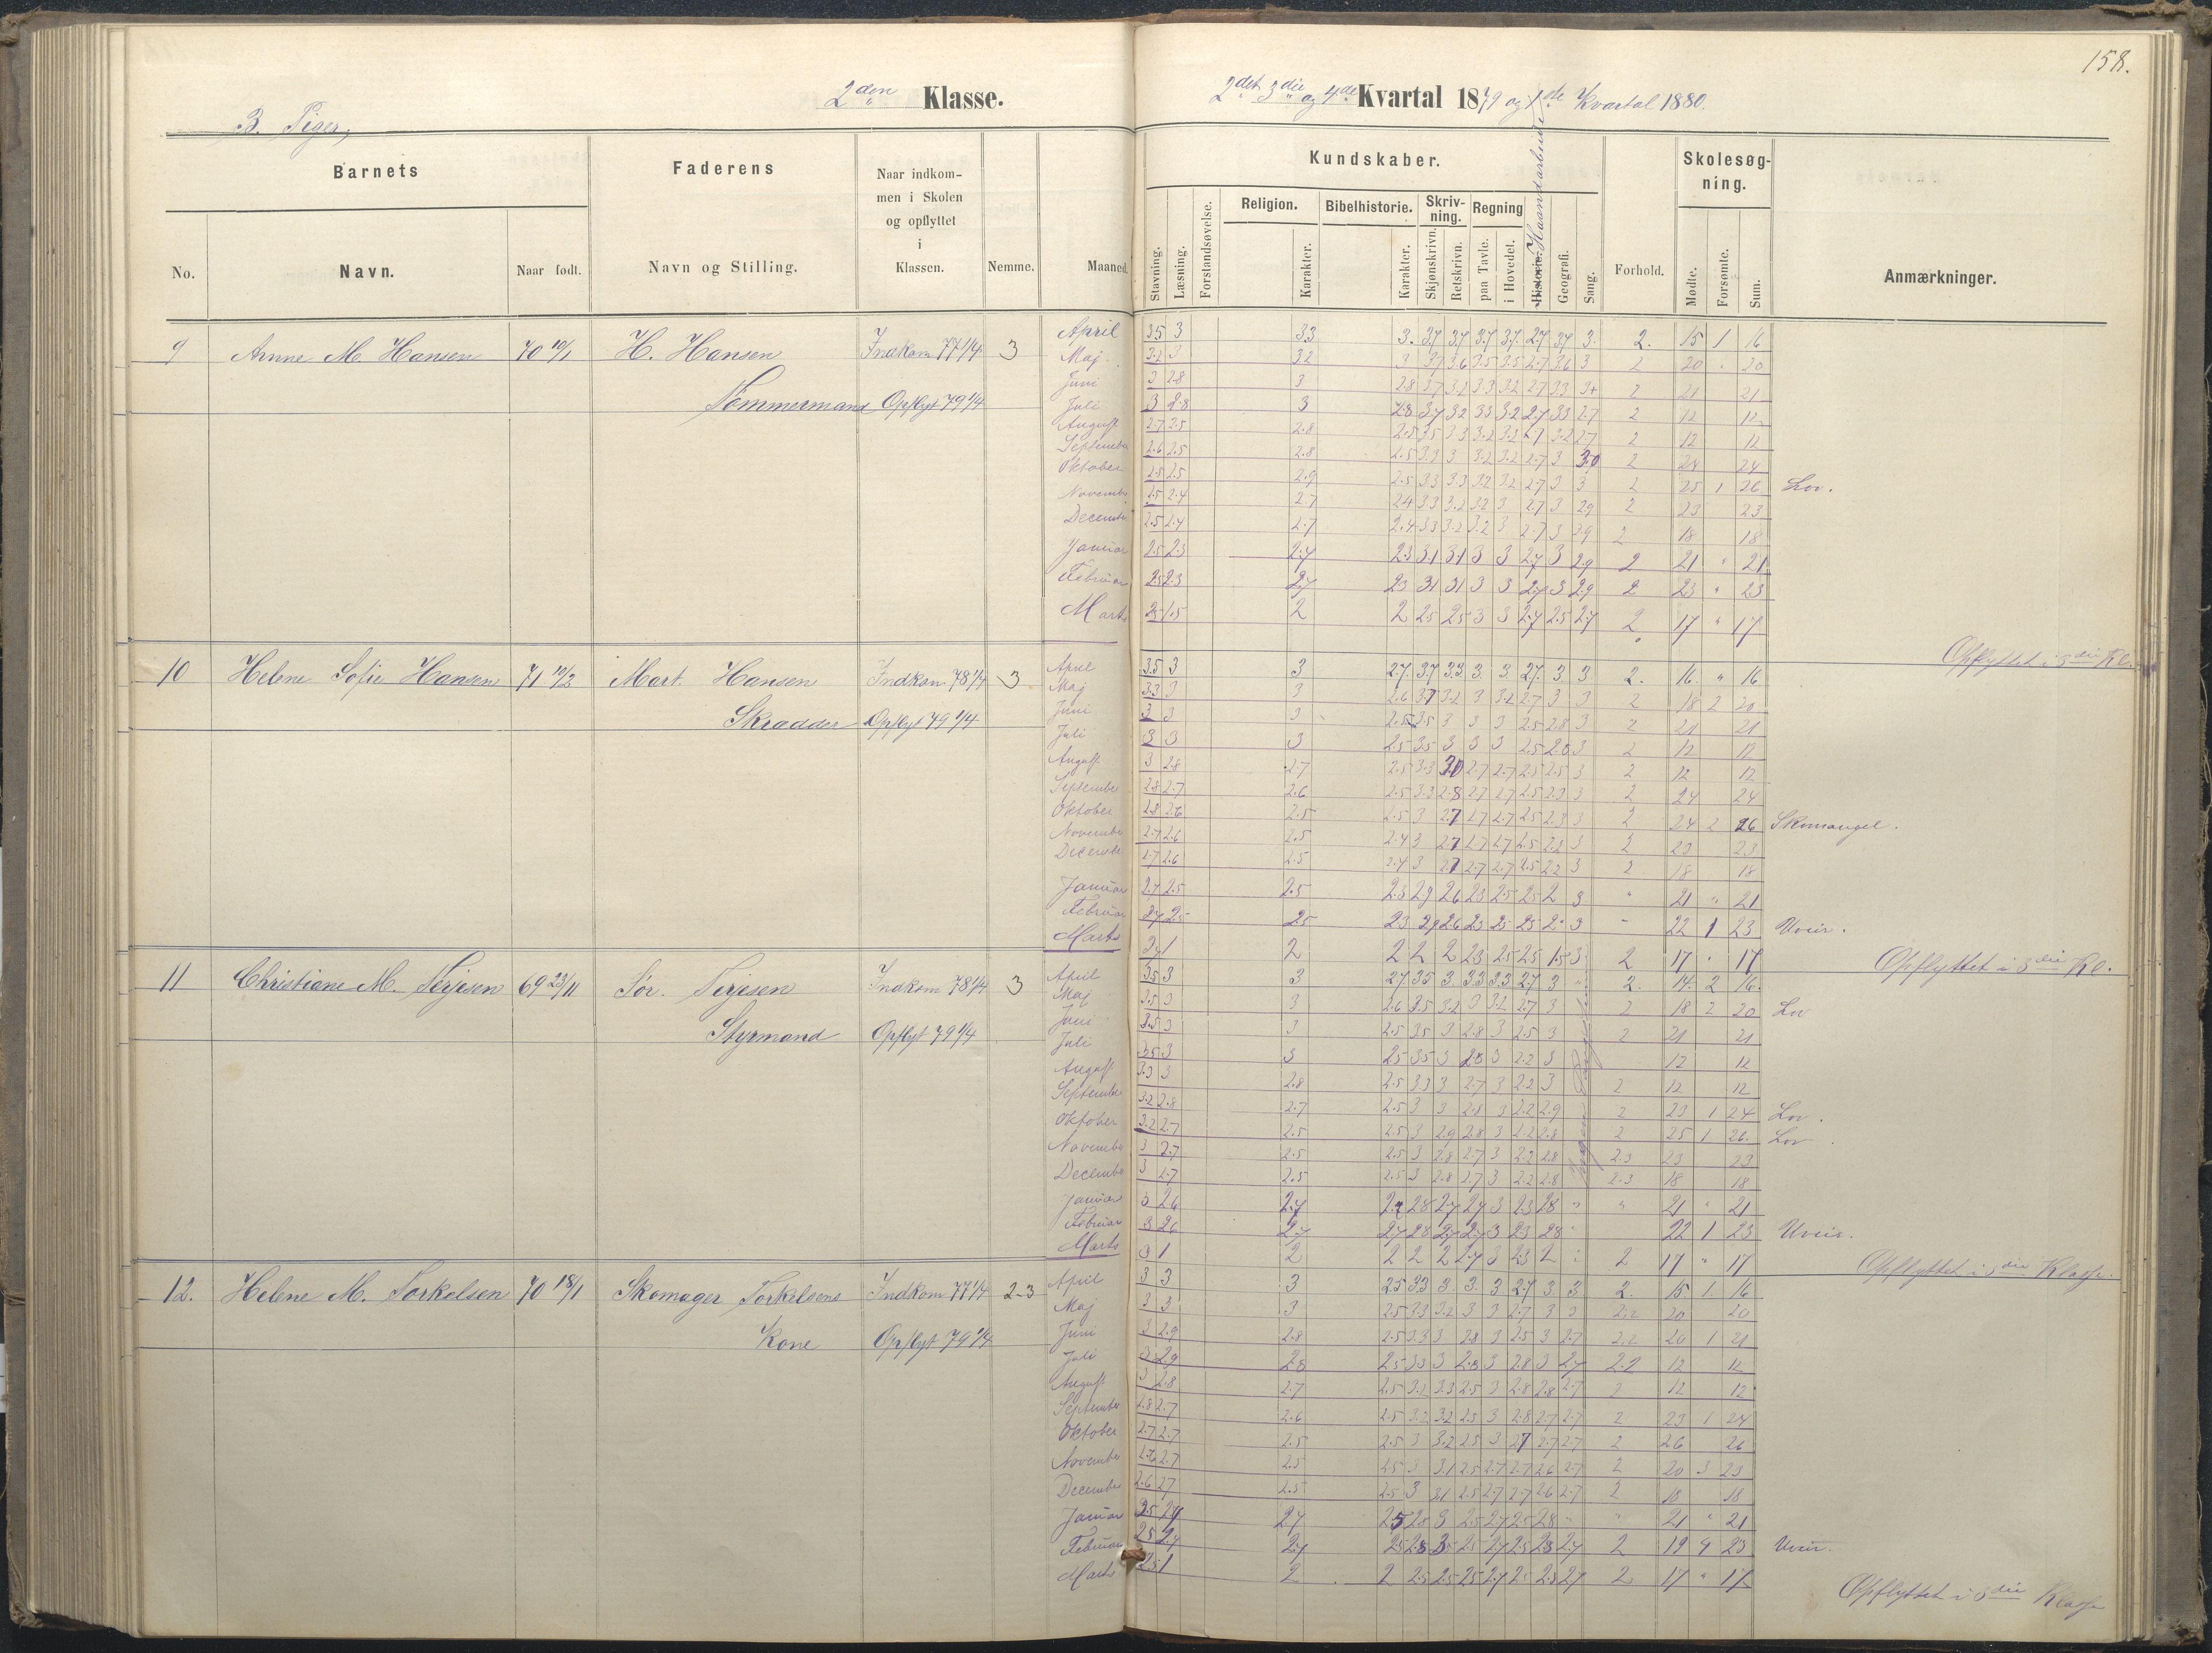 158.
2den Klasse.
2det 3die og 4de Kvartal 1879 og 1ste Kvartal 1880.
B. Piger,
Barnets
Faderens
Naar indkom-
men i Skolen
og opflyttet
i
Klassen.
No.
Navn.
Naar født.
Navn og Stilling.
Nemme.
Maaned.
Kundskaber.
Skolesøg-
ning.
Stavning.
Læsning.
Forstandsøvelse.
Religion.
Karakter.
Bibelhistorie.
Karakter.
Skriv-
ning.
Skjønskrivn.
Retskrivn.
Regning
paa Tavle.
i Hovedet.
Historie.
Haandarbeide
Geografi.
Sang.
Forhold.
Mødte.
Forsømte.
Sum.
Anmærkninger.
9 Anne M. Hansen 70 19/1 H. Hansen Indkom 77 1/4 3
Tømmermand Opflyt 79 1/4
April 3.5 3 3.3 3. 3.7 3.7 3.7 3.7 2.7 3.7 3. 2. 15 1 16
Maj 3.2 3 3.2 3 3.7 3.6 3.5 3.5 2.7 3.6 3 2 20 " 20
Juni 3 2.8 3 2.8 3.7 3.2 3.3 3.2 2.7 3.3 3+ 2 21 21
Juli 3 2.8 3 2.8 3.7 3.2 3.3 3.2 2.7 3.3 2.7 2 12 12
August 2.7 2.5 2.8 2.5 3.5 3.3 3.2 3.2 2.7 3.2 2.7 2 12 12
September 2.6 2.5 2.8 2.5 3.3 3 3.2 3.2 2.7 3 3.0 2 24 24
Oktober 2.5 2.5 2.9 2.5 3.3 3.3 3.2 3.2 2.7 3 3 2 25 1 26 Lov.
November 2.5 2.4 2.7 2.4 3.3 3.2 3.2 3 2.7 3 2.9 2 23 23
December 2.5 2.4 2.7 2.4 3.3 3.2 3.2 3 2.7 3 2.9 2 18 18
Januar 2.5 2.3 2.7 2.3 3.1 3.1 3 3 2.7 3 2.9 2 21 " 21
Februar 2.5 2.3 2.7 2.3 3.1 3.1 3 3 2.7 3 2.9 2 23 " 23
Marts 2.5 1.5 2 2 2.5 2.5 3 3 2.7 2.5 2.7 2 17 " 17
Opflyttet i 3die Kl.
10 Helene Sofie Hansen 71 19/2 Mart. Hansen Indkom 78 1/4 3
Skrædder Opflyt 79 1/4
April 3.5 3 3 2.7. 3.7 3.3. 3. 3. 2.7. 3 3 2. 16. " 16
Maj 3.3 3 3 2.6 3.7 3.2 3 3.2 2.7 3 3 2 18 2 20
Juni 3 3 3 2.5 3.5 3 3 3 2.5 2.8 3 2 21 21
Juli 3 3 3 2.5 3.5 3 3 3 2.5 2.5 3 2 12 12
August 3 2.8 2.7 2.5 3.3 3.0 2.7 2.7 2.5 2.5 3 2 12 12
September 2.8 2.7 2.6 2.5 3.3 2.8 2.7 2.7 2.5 2.3 3 2 24 24
Oktober 2.8 2.6 2.5 2.5 3 2.7 2.7 2.7 2.5 2.3 3 2 24 2 26 Skomangel.
November 2.7 2.6 2.5 2.4 3 2.7 2.7 2.7 2.5 2.2 3 2 23 23
December 2.7 2.6 2.5 2.4 3 2.7 2.7 2.7 2.5 2.2 3 2 18 18
Januar 2.7 2.5 2.5 2.3 2.9 2.6 2.3 2.5 2.5 2 3 " 21 " 21
Februar 2.7 2.5 2.5 2.3 2.9 2.6 2.3 2.5 2.5 2 3 " 22 1 23 Uveir.
Marts 2.7 1 2 2 2 2 2.3 2.5 2.5 1.5 3 2 17 " 17
Opflyttet i 3die Kl.
11 Christiane M. Terjesen 69 23/11 Sør. Terjesen Indkom 78 1/4 3
Styrmand Opflyt 79 1/4
April 3.5 3 3 2.7 3.5 3. 3.3 3.3 2.7 3 " 2. 14. 2 16.
Maj 3.5 3 3 2.6 3.5 3.2 3 3.2 2.7 3 2 18 2 20 Lov
Juni 3.5 3 3 2.5 3.5 3 2.8 3 2.5 3 2 21 21
Juli 3.5 3 3 2.5 3.5 3 2.8 3 2.2 3 12 12
August 3.3 3 2.8 2.5 3.3 3 2.7 3 2.2 3 2 12 12
September 3.2 2.8 2.7 2.5 3 3 2.8 3 2.2 2.9 2 23 1 24 Lov.
Oktober 3.2 2.7 2.5 2.5 3 2.9 2.8 3 2.2 2.8 2 25 1 26. Lov.
November 3 2.7 2.5 2.5 3 2.8 2.7 3 2.2 2.8 2.3 23 23
December 3 2.7 2.5 2.5 3 2.8 2.7 3 2.2 2.8 2.3 18 18
Januar 3 2.6 2.7 2.7 2.8 2.7 2.7 3 2.3 2.8 " " 21 " 21
Februar 3 2.6 2.7 2.7 2.8 2.7 2.7 3 2.3 2.8 " 22 1 23 Uveir.
Marts 3 1 2 2 2 2 2.7 3 2.3 2 " 2 17 " 17
Opflyttet i 3die Klasse.
12. Helene M. Torkelsen 70 18/1 Skomager Torkelsens Indkom 77 1/4 2-3
Kone Opflyt 79 1/4
April 3 3 3 2.5 3.3 3. 3. 3 2.7 3. 3. 2. 15 1. 16
Maj 3 3 3 2.5 3.3 3.2 3 3 2.7 3 3 2.2 20 20
Juni 3 2.9 2.8 2.5 3.3 3 2.8 3 2.5 3 2.7 2.2 20 1 21
Juli 3 2.9 2.8 2.5 3.3 3 2.8 3 2.8 3 2.7 2.2 12 12
August 3 2.8 2.7 2.5 3.2 3.3 2.5 3 2.8 2.8 2.7 2 12 12
September 2.8 2.7 2.6 2.5 3.2 3.2 2.5 3 2.8 2.7 2.7 2 23 1 24
Oktober 2.7 2.7 2.5 2.5 3 3.2 2.5 3 2.7 2.7 2.7 2 26 26
November 2.6 2.7 2.5 2.5 3 3.1 2.5 2.7 2.7 2.6 2.7 2 20 3 23
December 2.6 2.7 2.5 2.5 3 3.1 2.5 2.7 2.7 2.6 2.7 2 18 18
Januar 2.5 2.7 2.7 2.5 2.5 3 2.5 2.7 2.5 2.8 " " 21 " 21
Februar 2.5 2.7 2.7 2.5 2.8 3 2.5 2.7 2.5 2.8 2.7 2 19 4 23 Uveir.
Marts 2.5 1 2 2 2.5 2.5 2.5 2.7 2.5 2.3 2.7 2 17 " 17
Opflyttet i 3die Klasse